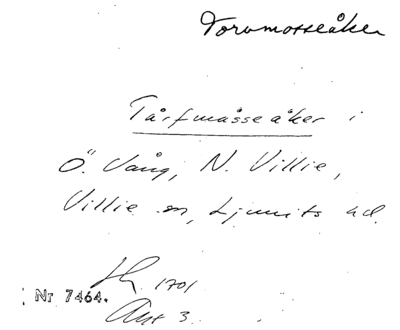 Torvmosseåker
Tårfmåsseåker i
Ö. Vång, N. Villie,
Villie sn, Ljunits hd.
1701
Nr 7464.
Akt 3.